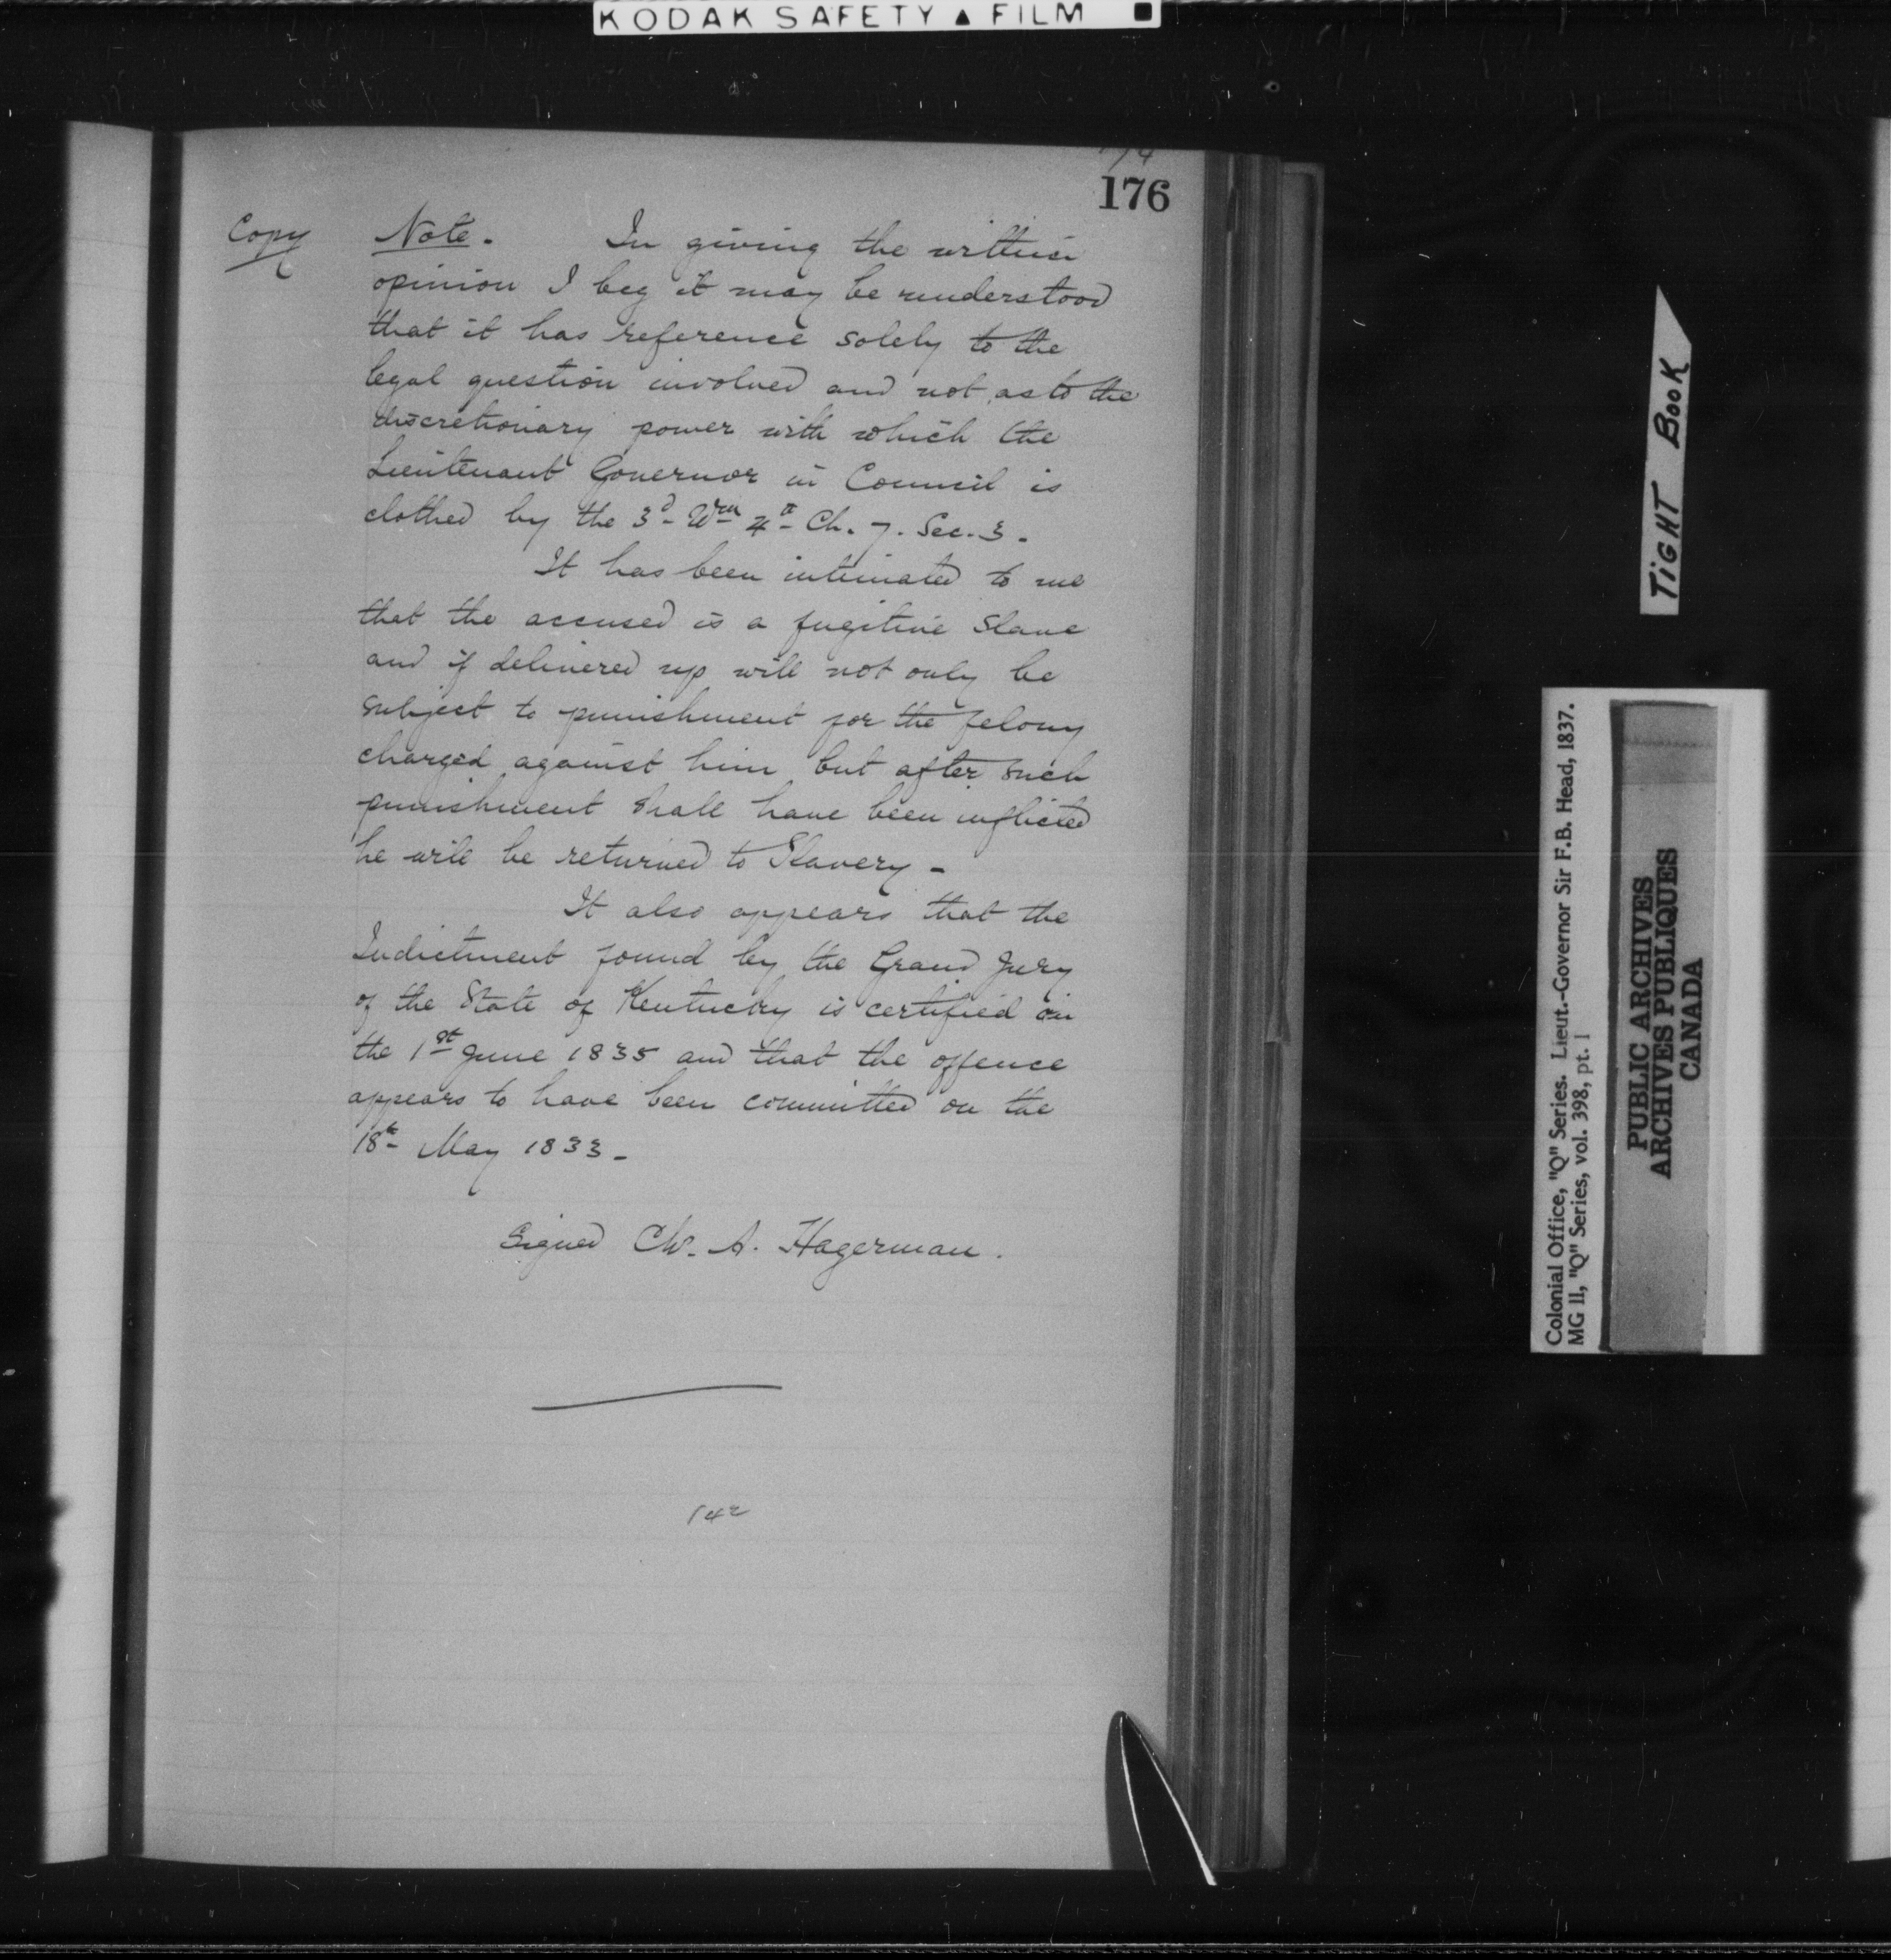 KODAK SAFETY ▲ FILM
176
Copy
Note. In giving the within
opinion I beg it may be understood
that it has reference solely to the
legal question involved and not as to the
discretionary power with which the
Lieutenant Governor in Council is
clothed by the 3d Wm 4th Ch. 7. Sec. 3.
It has been intimated to me
that the accused is a fugitive Slave
and if delivered up will not only be
subject to punishment for the felony
charged against him but after such
punishment shall have been inflicted
he will be returned to Slavery -
It also appears that the
Indictment found by the Grand Jury
of the State of Kentucky is certified on
the 1st June 1835 and that the offence
appears to have been committed on the
18th May 1833 -
Signed Ch. A. Hagerman.
142
TIGHT BOOK
Colonial Office, "Q" Series. Lieut.-Governor Sir F.B. Head, 1837.
MG 11, "Q" Series, vol. 398, pt. 1
PUBLIC ARCHIVES
ARCHIVES PUBLIQUES
CANADA